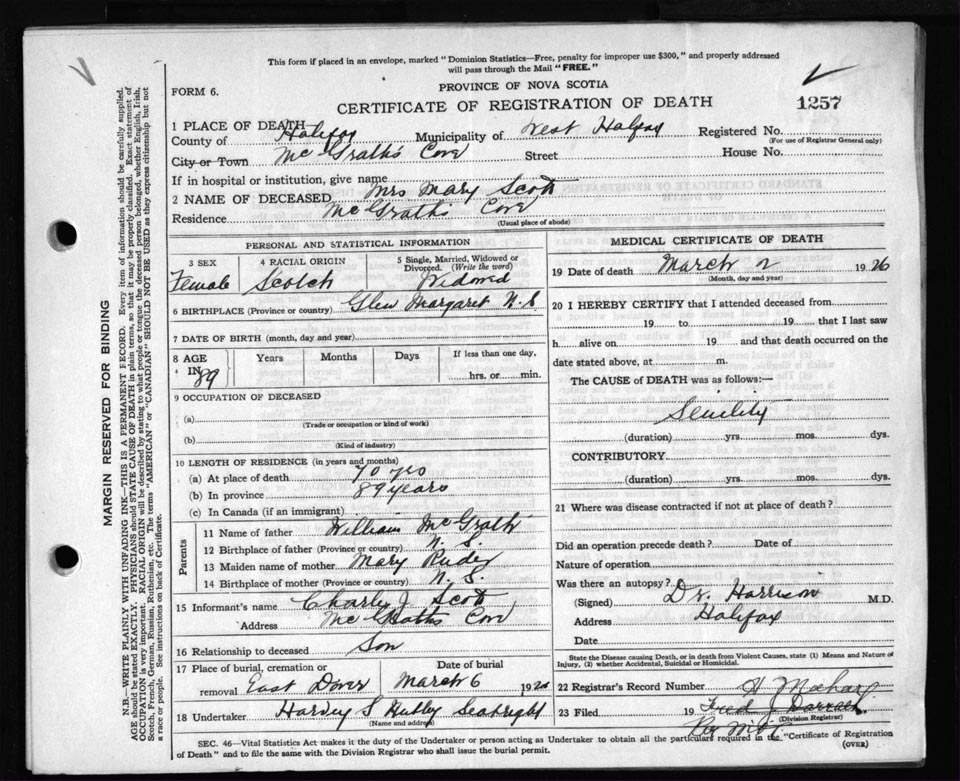 This form if placed in an envelope, marked "Dominion Statistics—Free, penalty for improper use $300," and properly addressed
will pass through the Mail "FREE."
PROVINCE OF NOVA SCOTIA
FORM 6.
CERTIFICATE OF REGISTRATION OF DEATH
1257
1 PLACE OF DEATH
County of Halifax Municipality of West Halifax Registered No.
(For use of Registrar General only)
City or Town McGrath's Cove Street House No.
If in hospital or institution, give name
2 NAME OF DECEASED Mrs Mary Scott
Residence McGrath's Cove
(Usual place of abode)
PERSONAL AND STATISTICAL INFORMATION
3 SEX 4 RACIAL ORIGIN 5 Single, Married, Widowed or
Divorced. (Write the word)
Female Scotch Widowed
6 BIRTHPLACE (Province or country) Glen Margaret N.S.
7 DATE OF BIRTH (month, day and year)
8 AGE Years Months Days If less than one day,
IN 89 hrs. or min.
9 OCCUPATION OF DECEASED
(a)
(Trade or occupation or kind of work)
(b)
(Kind of industry)
10 LENGTH OF RESIDENCE (in years and months)
(a) At place of death 70 yrs
(b) In province 89 years
(c) In Canada (if an immigrant)
Parents
11 Name of father William McGrath
12 Birthplace of father (Province or country) N.S.
13 Maiden name of mother Mary
14 Birthplace of mother (Province or country) N.S.
15 Informant's name Charly J. Scott
Address McGraths Cove
16 Relationship to deceased Son
17 Place of burial, cremation or Date of burial
removal East Dover March 6 192
18 Undertaker Harvey S Hubley Seabright
(Name and address)
MEDICAL CERTIFICATE OF DEATH
19 Date of death March 2 1926
(Month, day and year)
20 I HEREBY CERTIFY that I attended deceased from
19 to 19 that I last saw
h alive on 19 and that death occurred on the
date stated above, at m.
The CAUSE of DEATH was as follows:—
Senility
(duration) yrs. mos. dys.
CONTRIBUTORY
(duration) yrs. mos. dys.
21 Where was disease contracted if not at place of death?
Did an operation precede death? Date of
Nature of operation
Was there an autopsy?
(Signed) Dr. Harrison M.D.
Address Halifax
Date
State the Disease causing Death, or in death from Violent Causes, state (1) Means and Nature of
Injury, (2) whether Accidental, Suicidal or Homicidal.
22 Registrar's Record Number
23 Filed 19 Fred J Darrach
(Division Registrar)
SEC. 46—Vital Statistics Act makes it the duty of the Undertaker or person acting as Undertaker to obtain all the particulars required in the "Certificate of Registration
of Death" and to file the same with the Division Registrar who shall issue the burial permit.
(OVER)
MARGIN RESERVED FOR BINDING
N.B.—WRITE PLAINLY WITH UNFADING INK—THIS IS A PERMANENT RECORD. Every item of information should be carefully supplied.
AGE should be stated EXACTLY. PHYSICIANS should STATE CAUSE OF DEATH in plain terms, so that it may be properly classified. Exact statement of
OCCUPATION is very important. RACIAL ORIGIN will be described by stating to what people or tongue the deceased person belonged, whether English, Irish,
Scotch, French, German, Russian, Ruthenian, etc. The terms "AMERICAN" or "CANADIAN" SHOULD NOT BE USED as they express citizenship but not
a race or people. See instructions on back of Certificate.